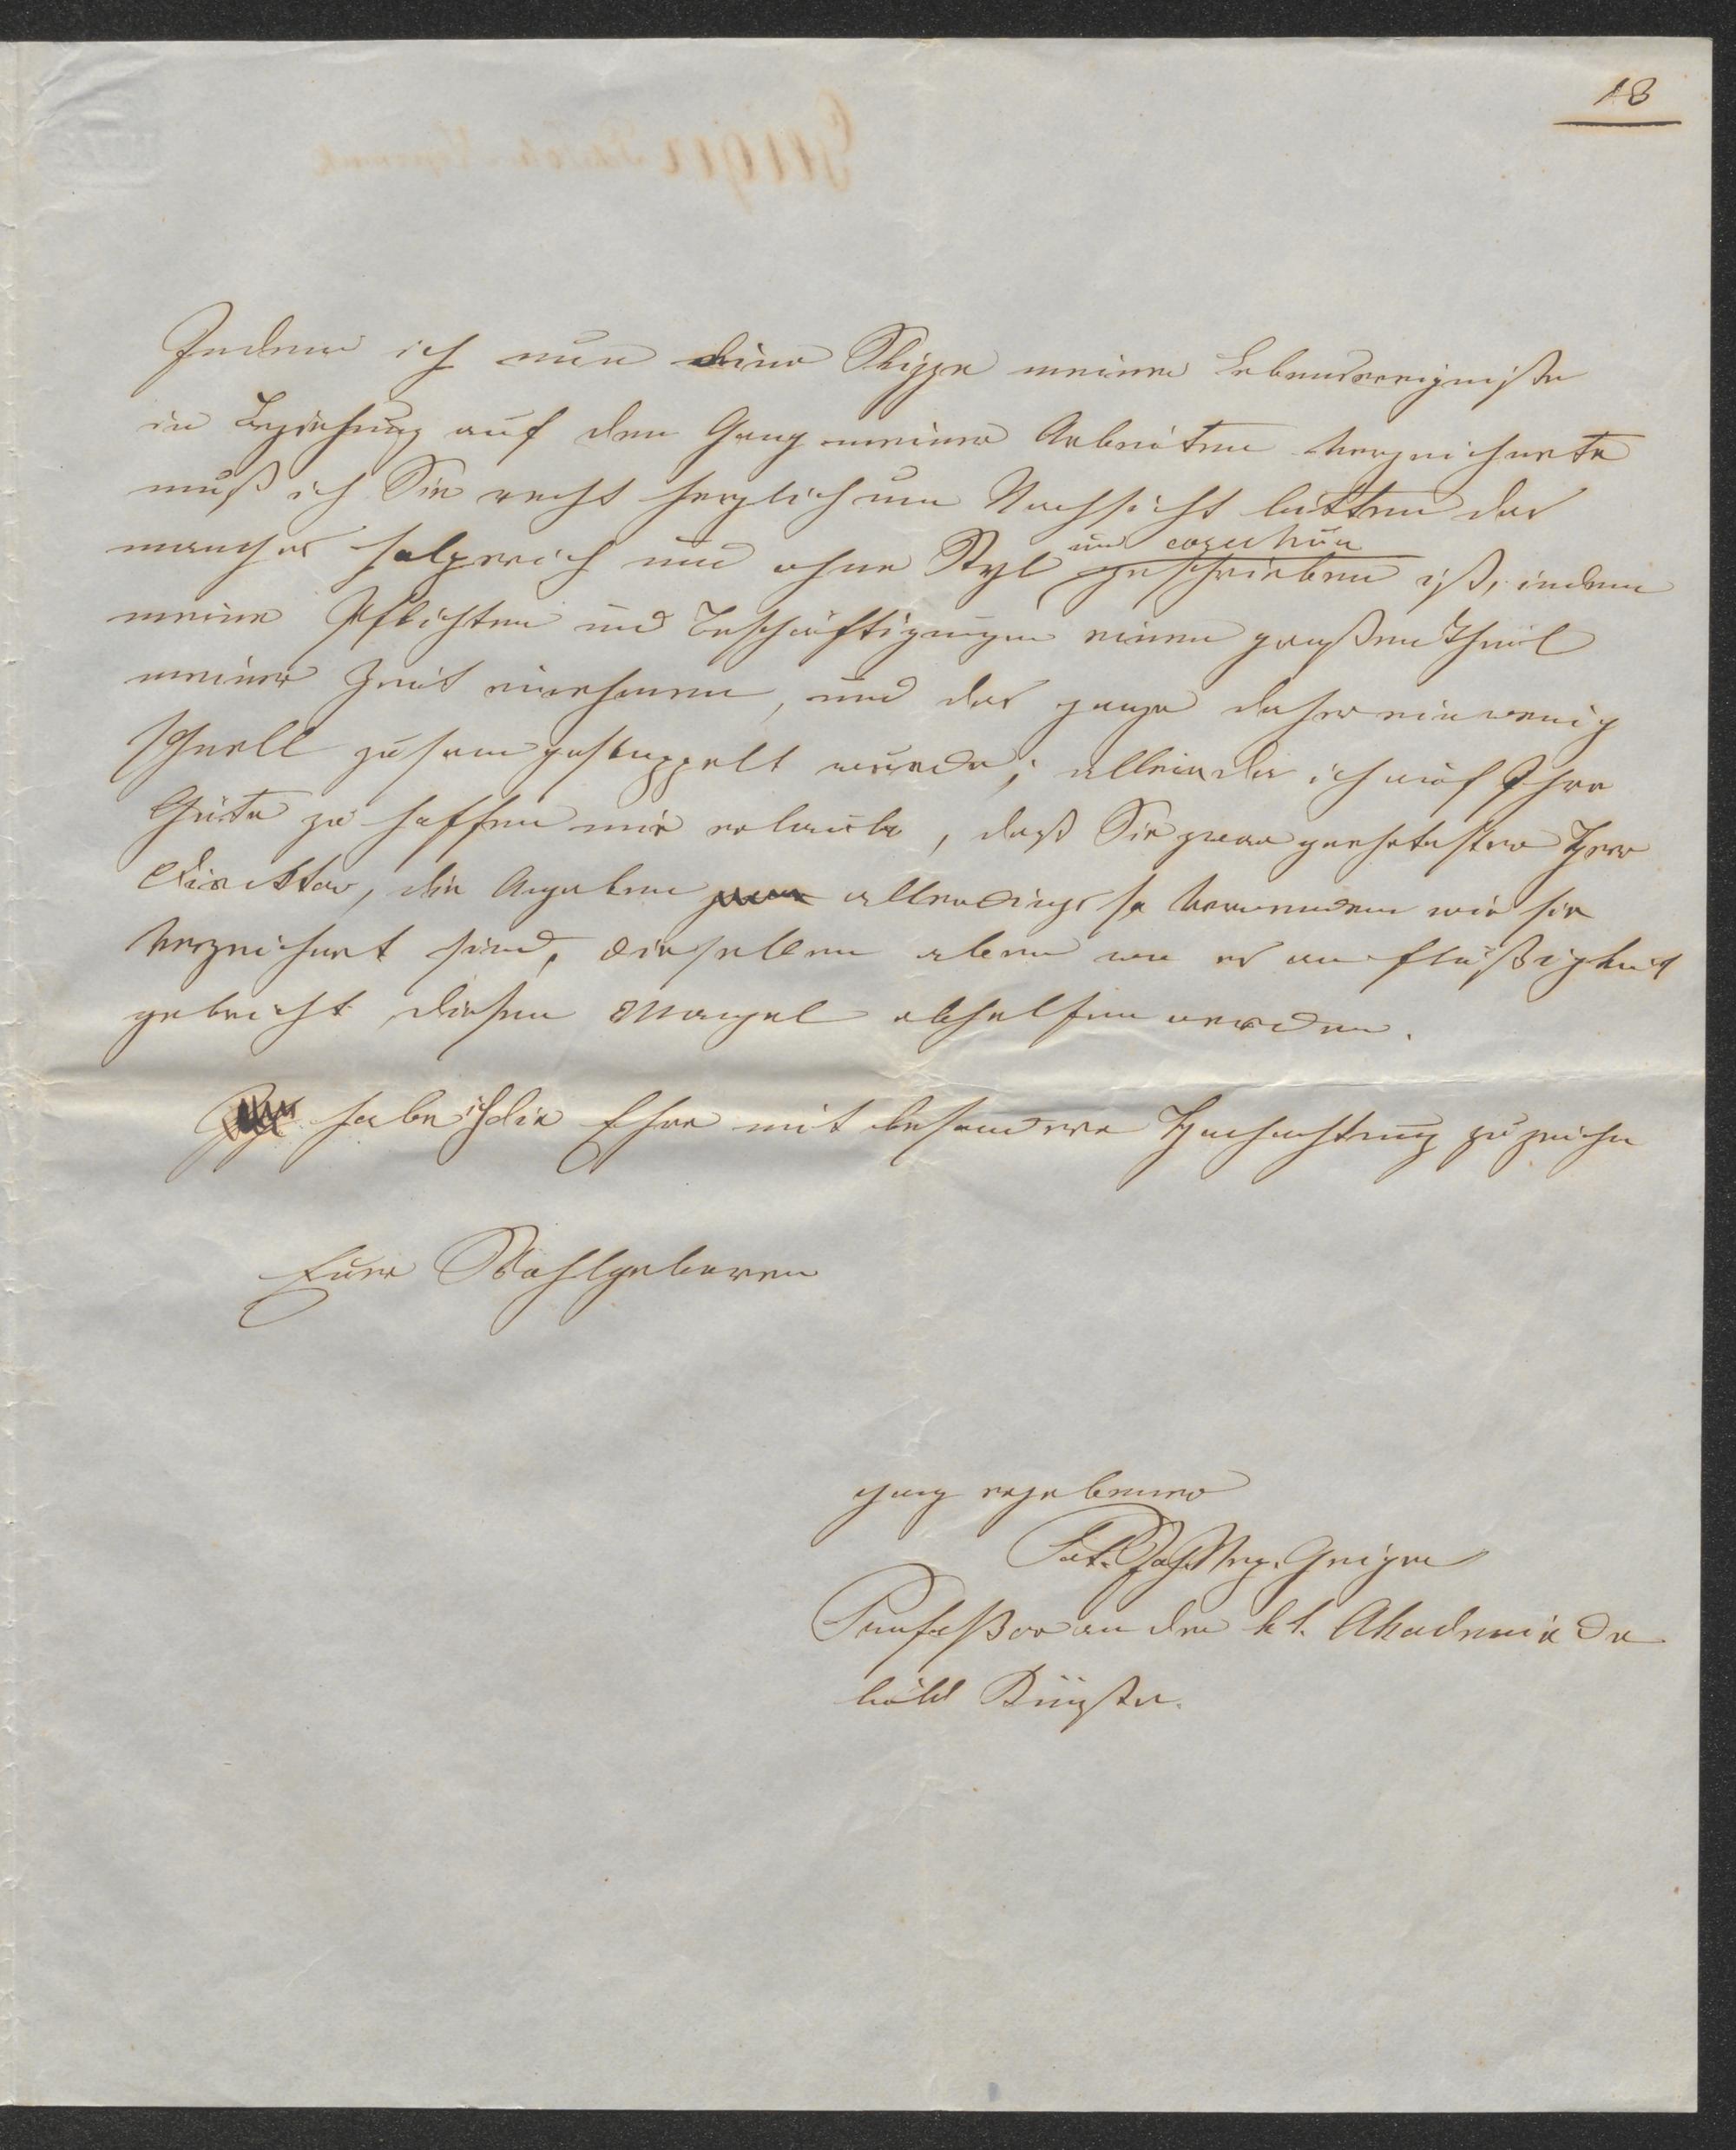 18
Indem ich nun eine Skizze meiner Lebensereigniße
in Beziehung auf den Gang meiner Arbeiten verzeichnete
muß ich Sie recht herzlich um Nachsicht bitten das
manches holpreich und ohne Styl geschrieben ist, indem
meine Pflichten und Beschäftigungen einen großen Theil
meiner Zeit einnehmen, und das ganze daher ein wenig
schnell zusamgestoppelt wurde; allein da ich auf Ihre
Güte zu hoffen mir erlaube, daß Sie zwar geehrtester Herr
Direktor, die Angaben allerdings so verwenden wie sie
verzeichnet sind, dieselben aber wo es an Flüßigkeit
gebricht diesen Mangel abhelfen werden.
habe ich die Ehre mit besonderer Hochachtung zu zeichn
Euer Wohlgeboren
ganz ergebener
Pet. Joh. Nep. Geiger
Profeßor an der k k. Akademie de
bild Künste.